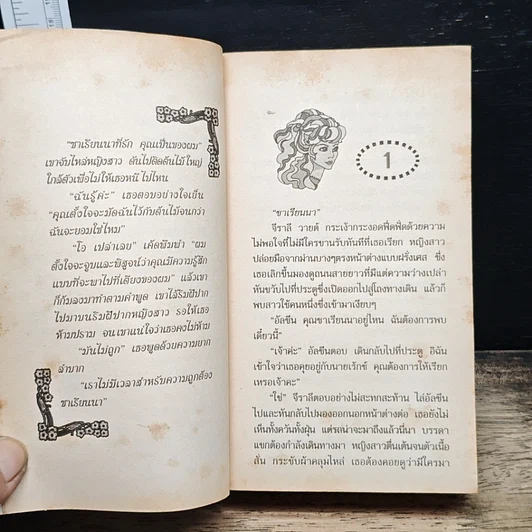 "ซาเรียนนาที่รัก คุณเป็นของผม"
เขาจับไหล่หญิงสาว ดันไปติดต้นไม้ใหญ่
ใกล้ตัวเพื่อไม่ให้เธอหนีไปไหน
"ฉันรู้ค่ะ" เธอตอบอย่างใจเย็น
"คุณตั้งใจจะมัดฉันไว้กับต้นไม้จนกว่า
ฉันจะยอมใช่ไหม"
"โอ เปล่าเลย" เค้ดพึมพำ "ผม
ตั้งใจจะจูบและพิสูจน์ว่าคุณมีความรู้สึก
แบบที่จะพาไปที่เตียงของผม" แล้วเขา
ก็ก้มลงมาทำตามคำพูด เขาไล้ริมฝีปาก
ไปมาบนริมฝีปากหญิงสาว รอให้เธอ
ห้ามปราม จนเขาแน่ใจว่าเธอคงไม่ห้าม
"มันไม่ถูก" เธอพูดด้วยความยาก
ลำบาก
"เราไม่มีเวลาสำหรับความถูกต้อง
ซาเรียนนา"
1
"ซาเรียนนา"
จีราลี วายต์ กระเง้ากระงอดฟึดฟัดด้วยความ
ไม่พอใจที่ไม่มีใครขานรับทันทีที่เธอเรียก หญิงสาว
ปล่อยมือจากม่านบางๆตรงหน้าต่างแบบฝรั่งเศส ซึ่ง
ที่เธอเลิกขึ้นมองดูถนนสายยาวที่มีแต่ความว่างเปล่า
หันขวับไปที่ประตูซึ่งเปิดออกไปสู่โถงทางเดิน แล้วก็
พบสาวใช้คนหนึ่งซึ่งเข้ามาเงียบๆ
"อัลซีน คุณซาเรียนนาอยู่ไหน ฉันต้องการพบ
เดี๋ยวนี้"
"เจ้าค่ะ" อัลซีนตอบ เดินกลับไปที่ประตู อิฉัน
เข้าใจว่าเธอคุยอยู่กับนายเร้กซ์ คุณต้องการให้เรียก
เหรอเจ้าคะ"
"ใช่" จีราลีตอบอย่างไม่สะทกสะท้าน ไล่อัลซีน
ไปและหันกลับไปมองออกนอกหน้าต่างต่อ เธอยังไม่
เห็นทั้งควันทั้งฝุ่น แต่รถน่าจะมาถึงแล้วนี่นา บรรดา
แขกต้องกำลังเดินทางมา หญิงสาวตื่นเต้นจนตัวเนื้อ
สั่น กระชับผ้าคลุมไหล่ เธอต้องคอยดูว่ามีใครมา